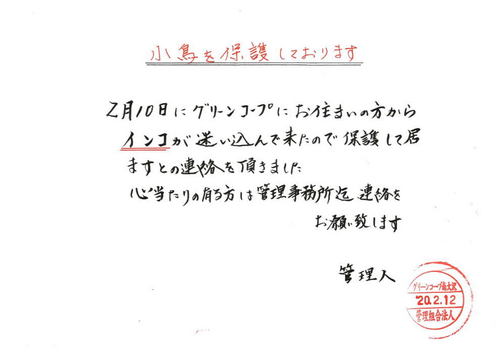 小鳥を保護しております
2月10日にグリーンコープにお住まいの方から
インコが迷い込んで来たので保護して居
ますとの連絡を頂きました
心当たりの有る方は管理事務所迄連絡を
お願い致します
管理人
グリーンコープ南大沢
'20.2.12
管理組合法人